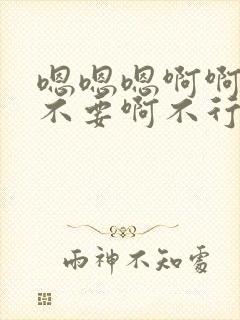 嗯嗯嗯啊啊
不要啊不行
雨神不知处